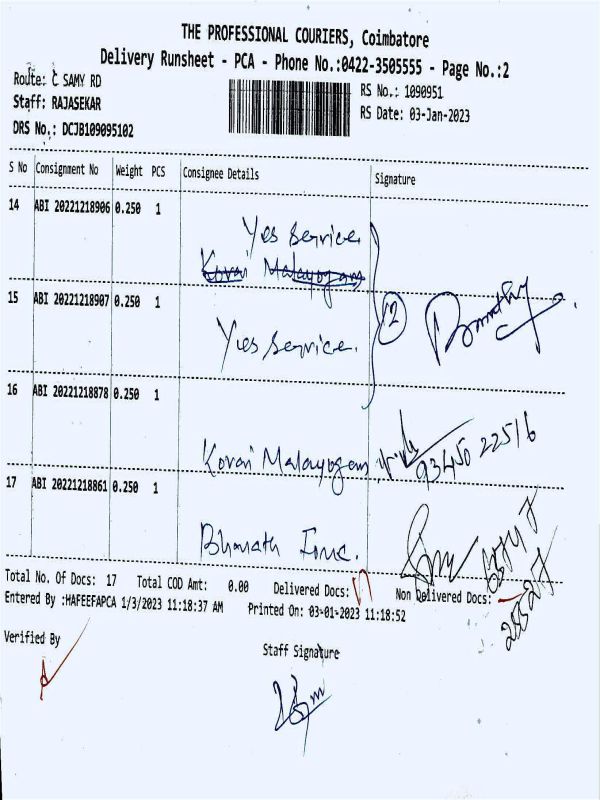 THE PROFESSIONAL COURIERS, Coimbatore
Delivery Runsheet - PCA - Phone No.:0422-3505555 - Page No.:2
Route: C SAMY RD
Staff: RAJASEKAR
DRS No.: DCJB109095102
RS No.: 1090951
RS Date: 03-Jan-2023
S No Consignment No Weight PCS Consignee Details Signature
14 ABI 20221218906 0.250 1
Yes Service.
Kovai Malayogam
15 ABI 20221218907 0.250 1
2
Yes Service.
16 ABI 20221218878 0.250 1
Kovai Malayogam
93450 22516
17 ABI 20221218861 0.250 1
Bharath
Total No. Of Docs: 17 Total COD Amt: 0.00 Delivered Docs: 17 Non Delivered Docs:
Entered By :HAFEEFAPCA 1/3/2023 11:18:37 AM Printed On: 03-01-2023 11:18:52
Verified By
Staff Signature